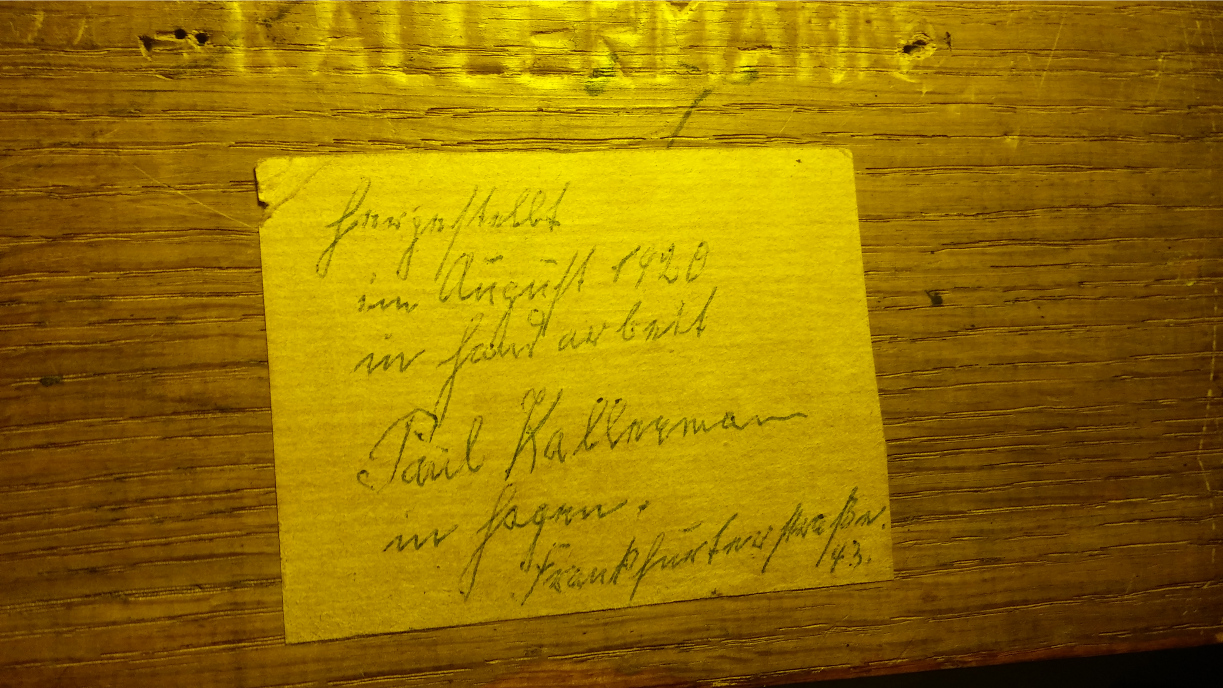 KALLERMANN
Hergestellt
im August 1920
in Handarbeit
Paul Kallermann
in Hagen.
Frankfurterstraße.
43.